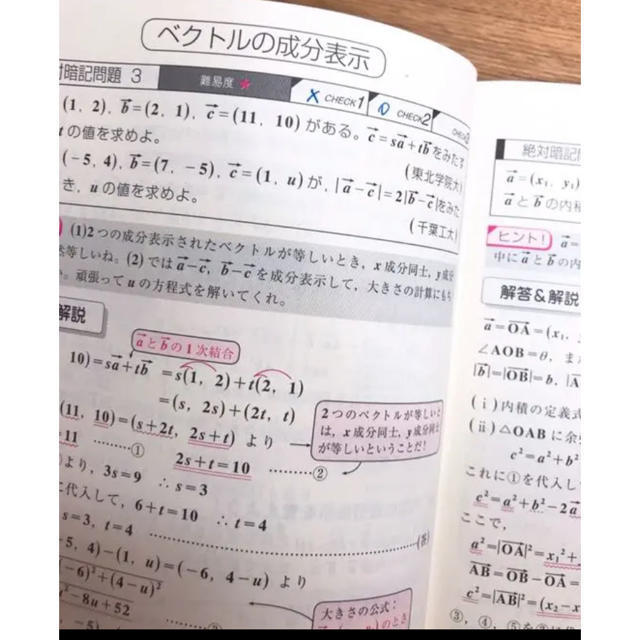 ベクトルの成分表示
対暗記問題 3 難易度 ★ CHECK1 CHECK2
(1, 2), b=(2, 1), c=(11, 10)がある。c=sa+tbをみたす
tの値を求めよ。 (東北学院大)
(-5, 4), b=(7, -5), c=(1, u)が, |a-c|=2|b-c|をみた
き, uの値を求めよ。 (千葉工大)
(1)2つの成分表示されたベクトルが等しいとき, x成分同士, y成分
等しいね。(2)では a-c, b-cを成分表示して, 大きさの計算にもち
頑張ってuの方程式を解いてくれ。
解説
aとbの1次結合
10)=sa+tb =s(1, 2)+t(2, 1)
=(s, 2s)+(2t, t)
(11, 10)=(s+2t, 2s+t) より
2つのベクトルが等しいと
は, x成分同士, y成分同士
が等しいということだ!
=11 ……① 2s+t=10 ……②
より, 3s=9 ∴s=3
に代入して, 6+t=10 ∴t=4
s=3, t=4 ……(答)
5, 4)-(1, u)=(-6, 4-u) より
-6)²+(4-u)²
-8u+52
大きさの公式:
のとき
絶対暗記問
a=(x₁, y₁)
aとbの内積
ヒント! a=
中にaとbの内
解答&解説
a=OA=(x₁,
∠AOB=θ, ま
|b|=|OB|=b, |A
(i)内積の定義式
(ii)△OABに余
c²=a²+b²
これに①を代入し
c²=a²+b²-2a
ここで,
a²=|OA|²=x₁²+
AB=OB-OA=
c²=|AB|²=(x₂-x
③, ④, ⑤を②に代